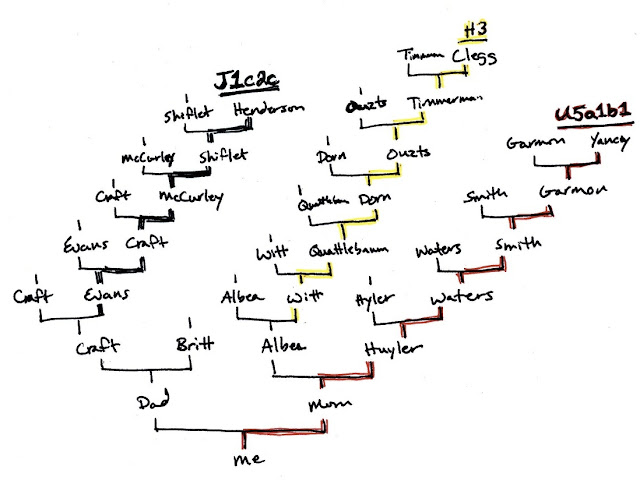 H3
Timmerman Clegg
J1c2c
Shiflet Henderson
Ouzts Timmerman
U5a1b1
Garmon Yancey
McCurley Shiflet
Dorn Ouzts
Craft McCurley
Quattlebaum Dorn
Smith Garmon
Evans Craft
Witt Quattlebaum
Waters Smith
Craft Evans
Albea Witt
Hyler Waters
Craft Britt
Albea Huyler
Dad Mom
me